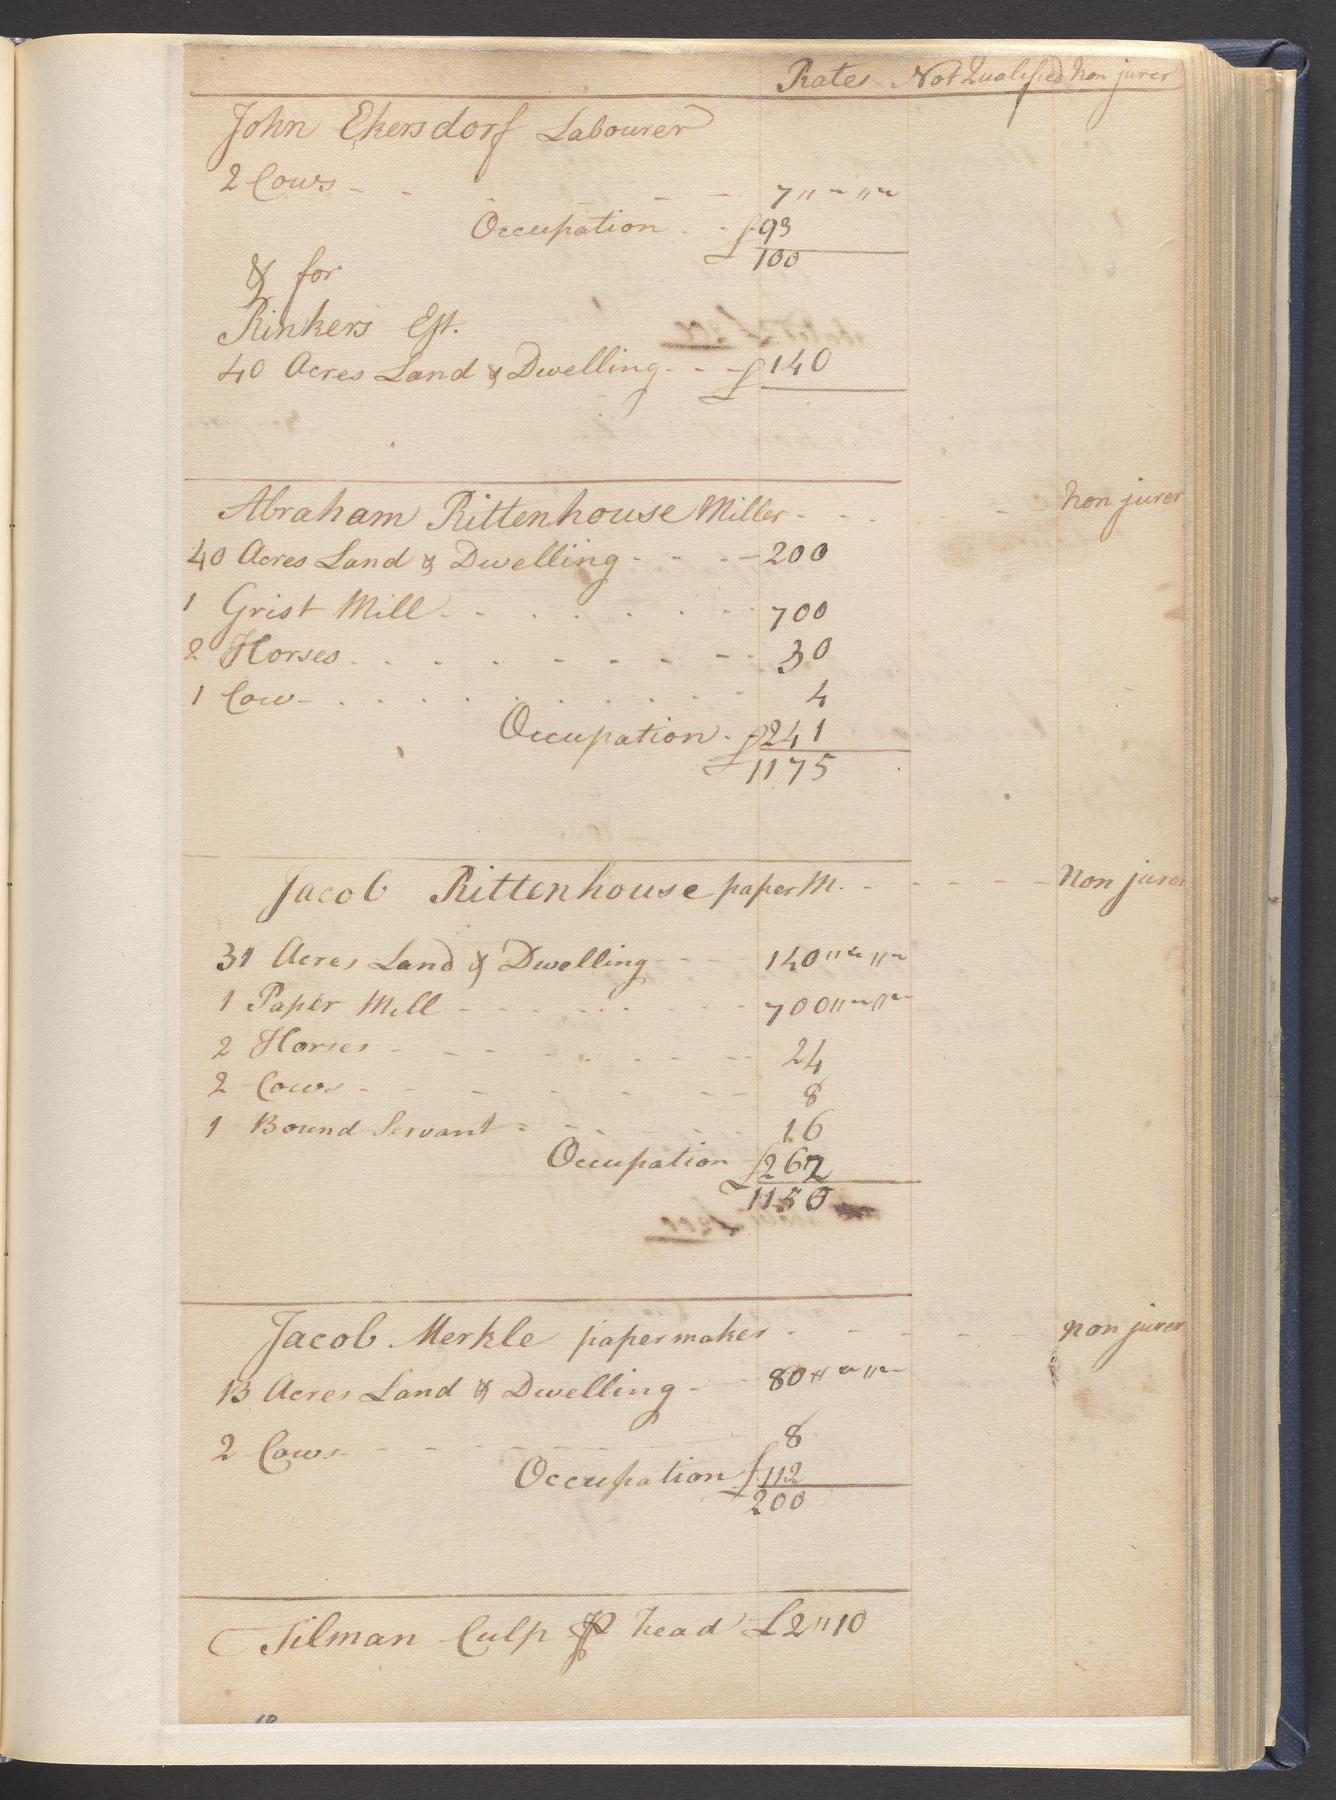 Rates Not Qualified Non jurer
John Ekersdorf Labourer
2 Cows - - - - 7 " ~ " ~
Occupation - - £ 93
£ 100
& for
Rinkers Est.
40 Acres Land & Dwelling - - £ 140
Abraham Rittenhouse Miller - - - - Non jurer
40 Acres Land & Dwelling - - - 200
1 Grist Mill - - - - - - 700
2 Horses - - - - - - - 30
1 Cow - - - - - - - 4
Occupation - £ 241
£ 1175
Jacob Rittenhouse paper M. - - - - Non jurer
31 Acres Land & Dwelling - - 140 " ~ " ~
1 Paper Mill - - - - - - 700 " ~ " ~
2 Horses - - - - - - - 24
2 Cows - - - - - - 8
1 Bound Servant = - - - - 16
Occupation - £ 262
£ 1150
Jacob Merkle papermaker - - - - Non jurer
13 Acres Land & Dwelling - - 80 " ~ " ~
2 Cows - - - - - 8
Occupation £ 112
£ 200
Tilman Culp ⅌ head £2 " 10